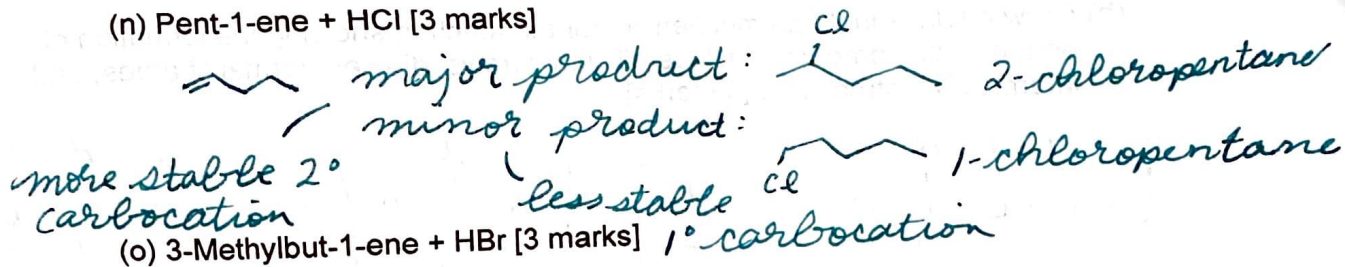 (n) Pent-1-ene + HCl [3 marks]
Cl
major product: 2-chloropentane
minor product:
1-chloropentane
Cl
more stable 2°
carbocation
less stable
1° carbocation
(o) 3-Methylbut-1-ene + HBr [3 marks]